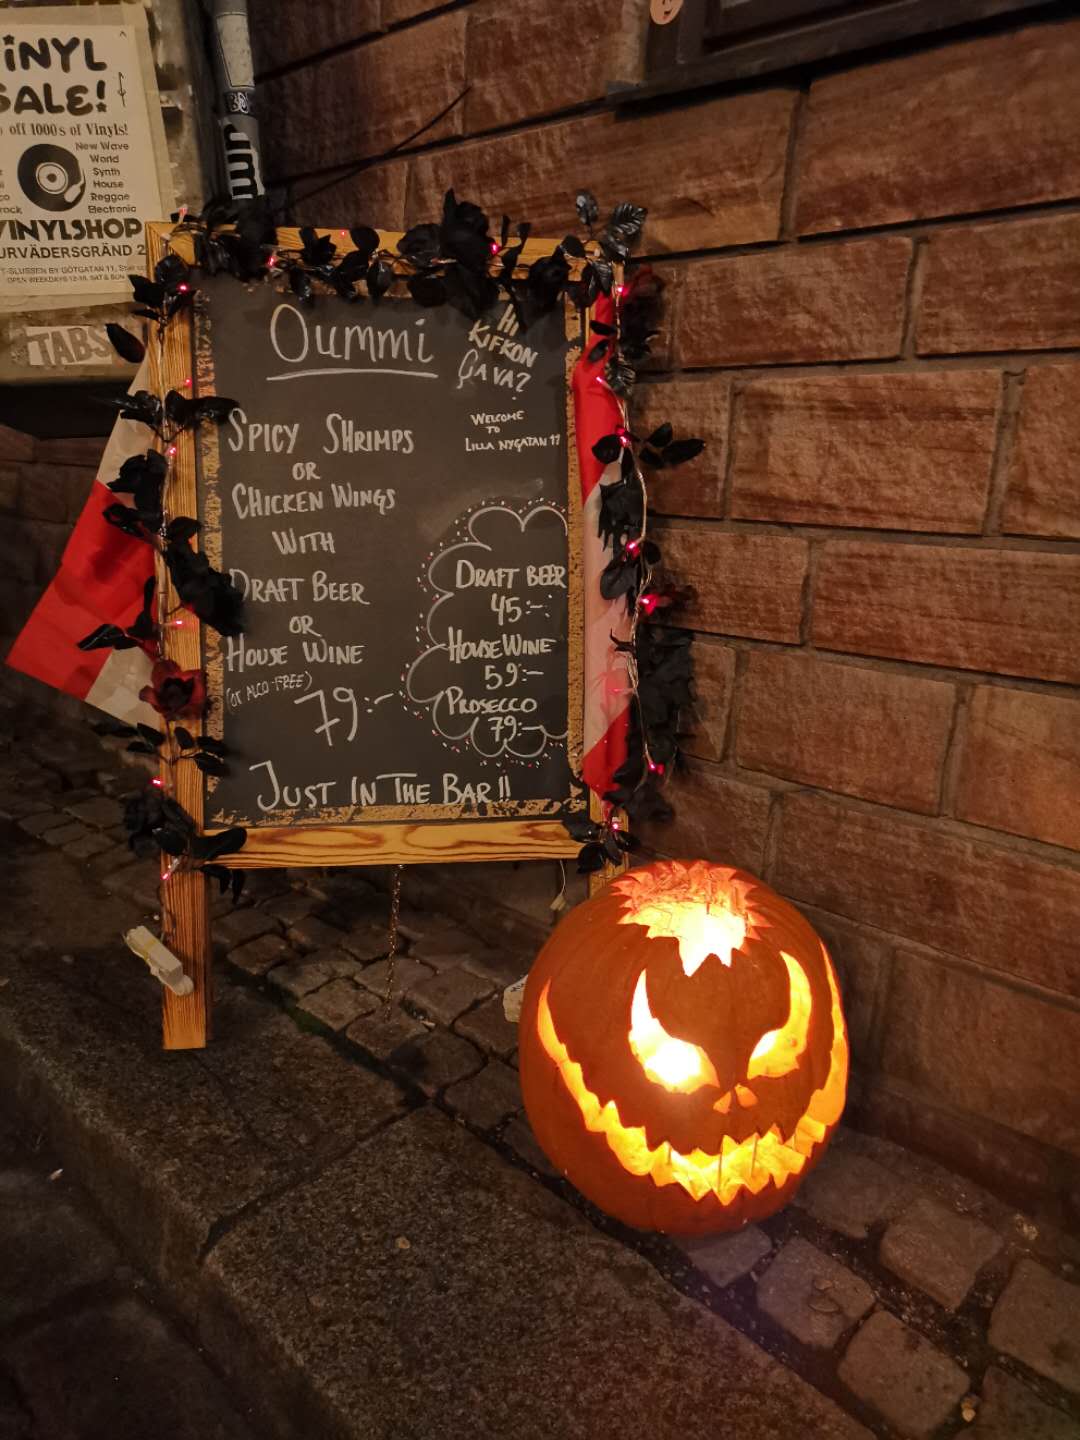 iNYL
SALE!
off 1000's of Vinyls!
New Wave
World
Synth
House
Reggae
Electronic
rock
VINYLSHOP
URVÄDERSGRÄND 2
T-SLUSSEN BY GÖTGATAN 11,
OPEN WEEKDAYS 12-18, SAT & SUN
TABS
Oummi
Hi
KIFKON
ÇA VA?
WELCOME
TO
LILLA NYGATAN 11
SPICY SHRIMPS
OR
CHICKEN WINGS
WITH
DRAFT BEER
OR
HOUSE WINE
(or ALCO-FREE)
79:-
DRAFT BEER
45:-
HOUSE WINE
59:-
PROSECCO
79:-
JUST IN THE BAR!!